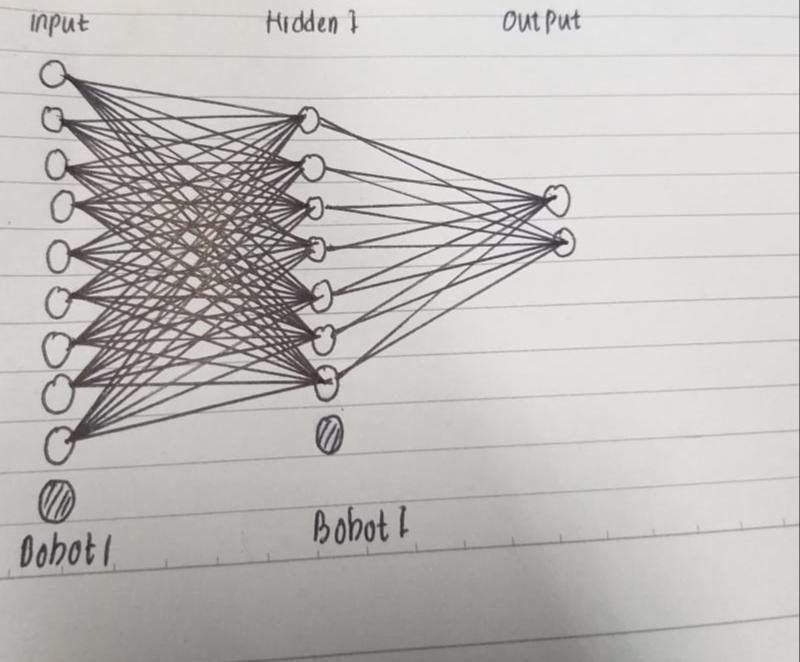 input
Hidden 1
Output
Bobot 1
Bobot 1